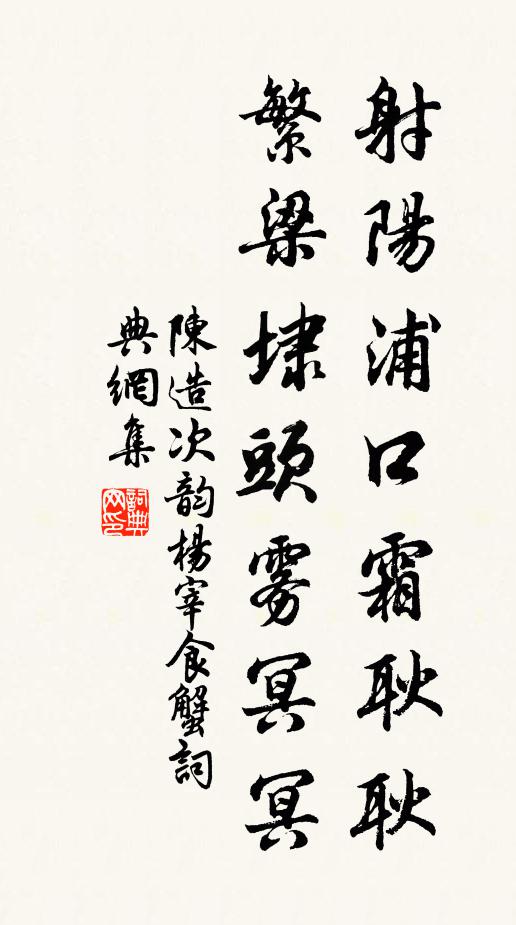 射陽浦口霜耿耿
繁梁埭頭雾冥冥
陳造次韵楊宰食蟹詞
典網集
詞典網印